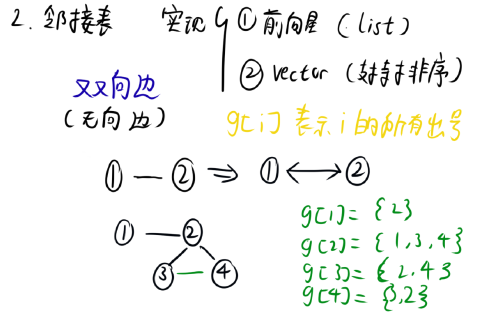 2. 邻接表 实现 ① 前向星 (list)
② vector (
双向边
(无向边)
g[i] 表示 i 的所有出
① — ② ⇒ ① ↔ ②
① ②
③ ④
g[1] = {2}
g[2] = {1,3,4}
g[3] = {2,4}
g[4] = {3,2}